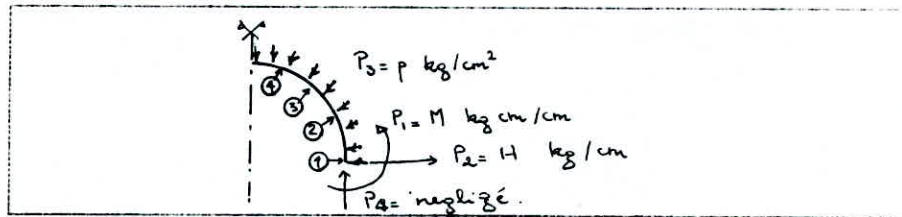 P3 = p kg/cm²
④
③
P1 = M kg cm/cm
②
P2 = H kg/cm
①
P4 = negligé.